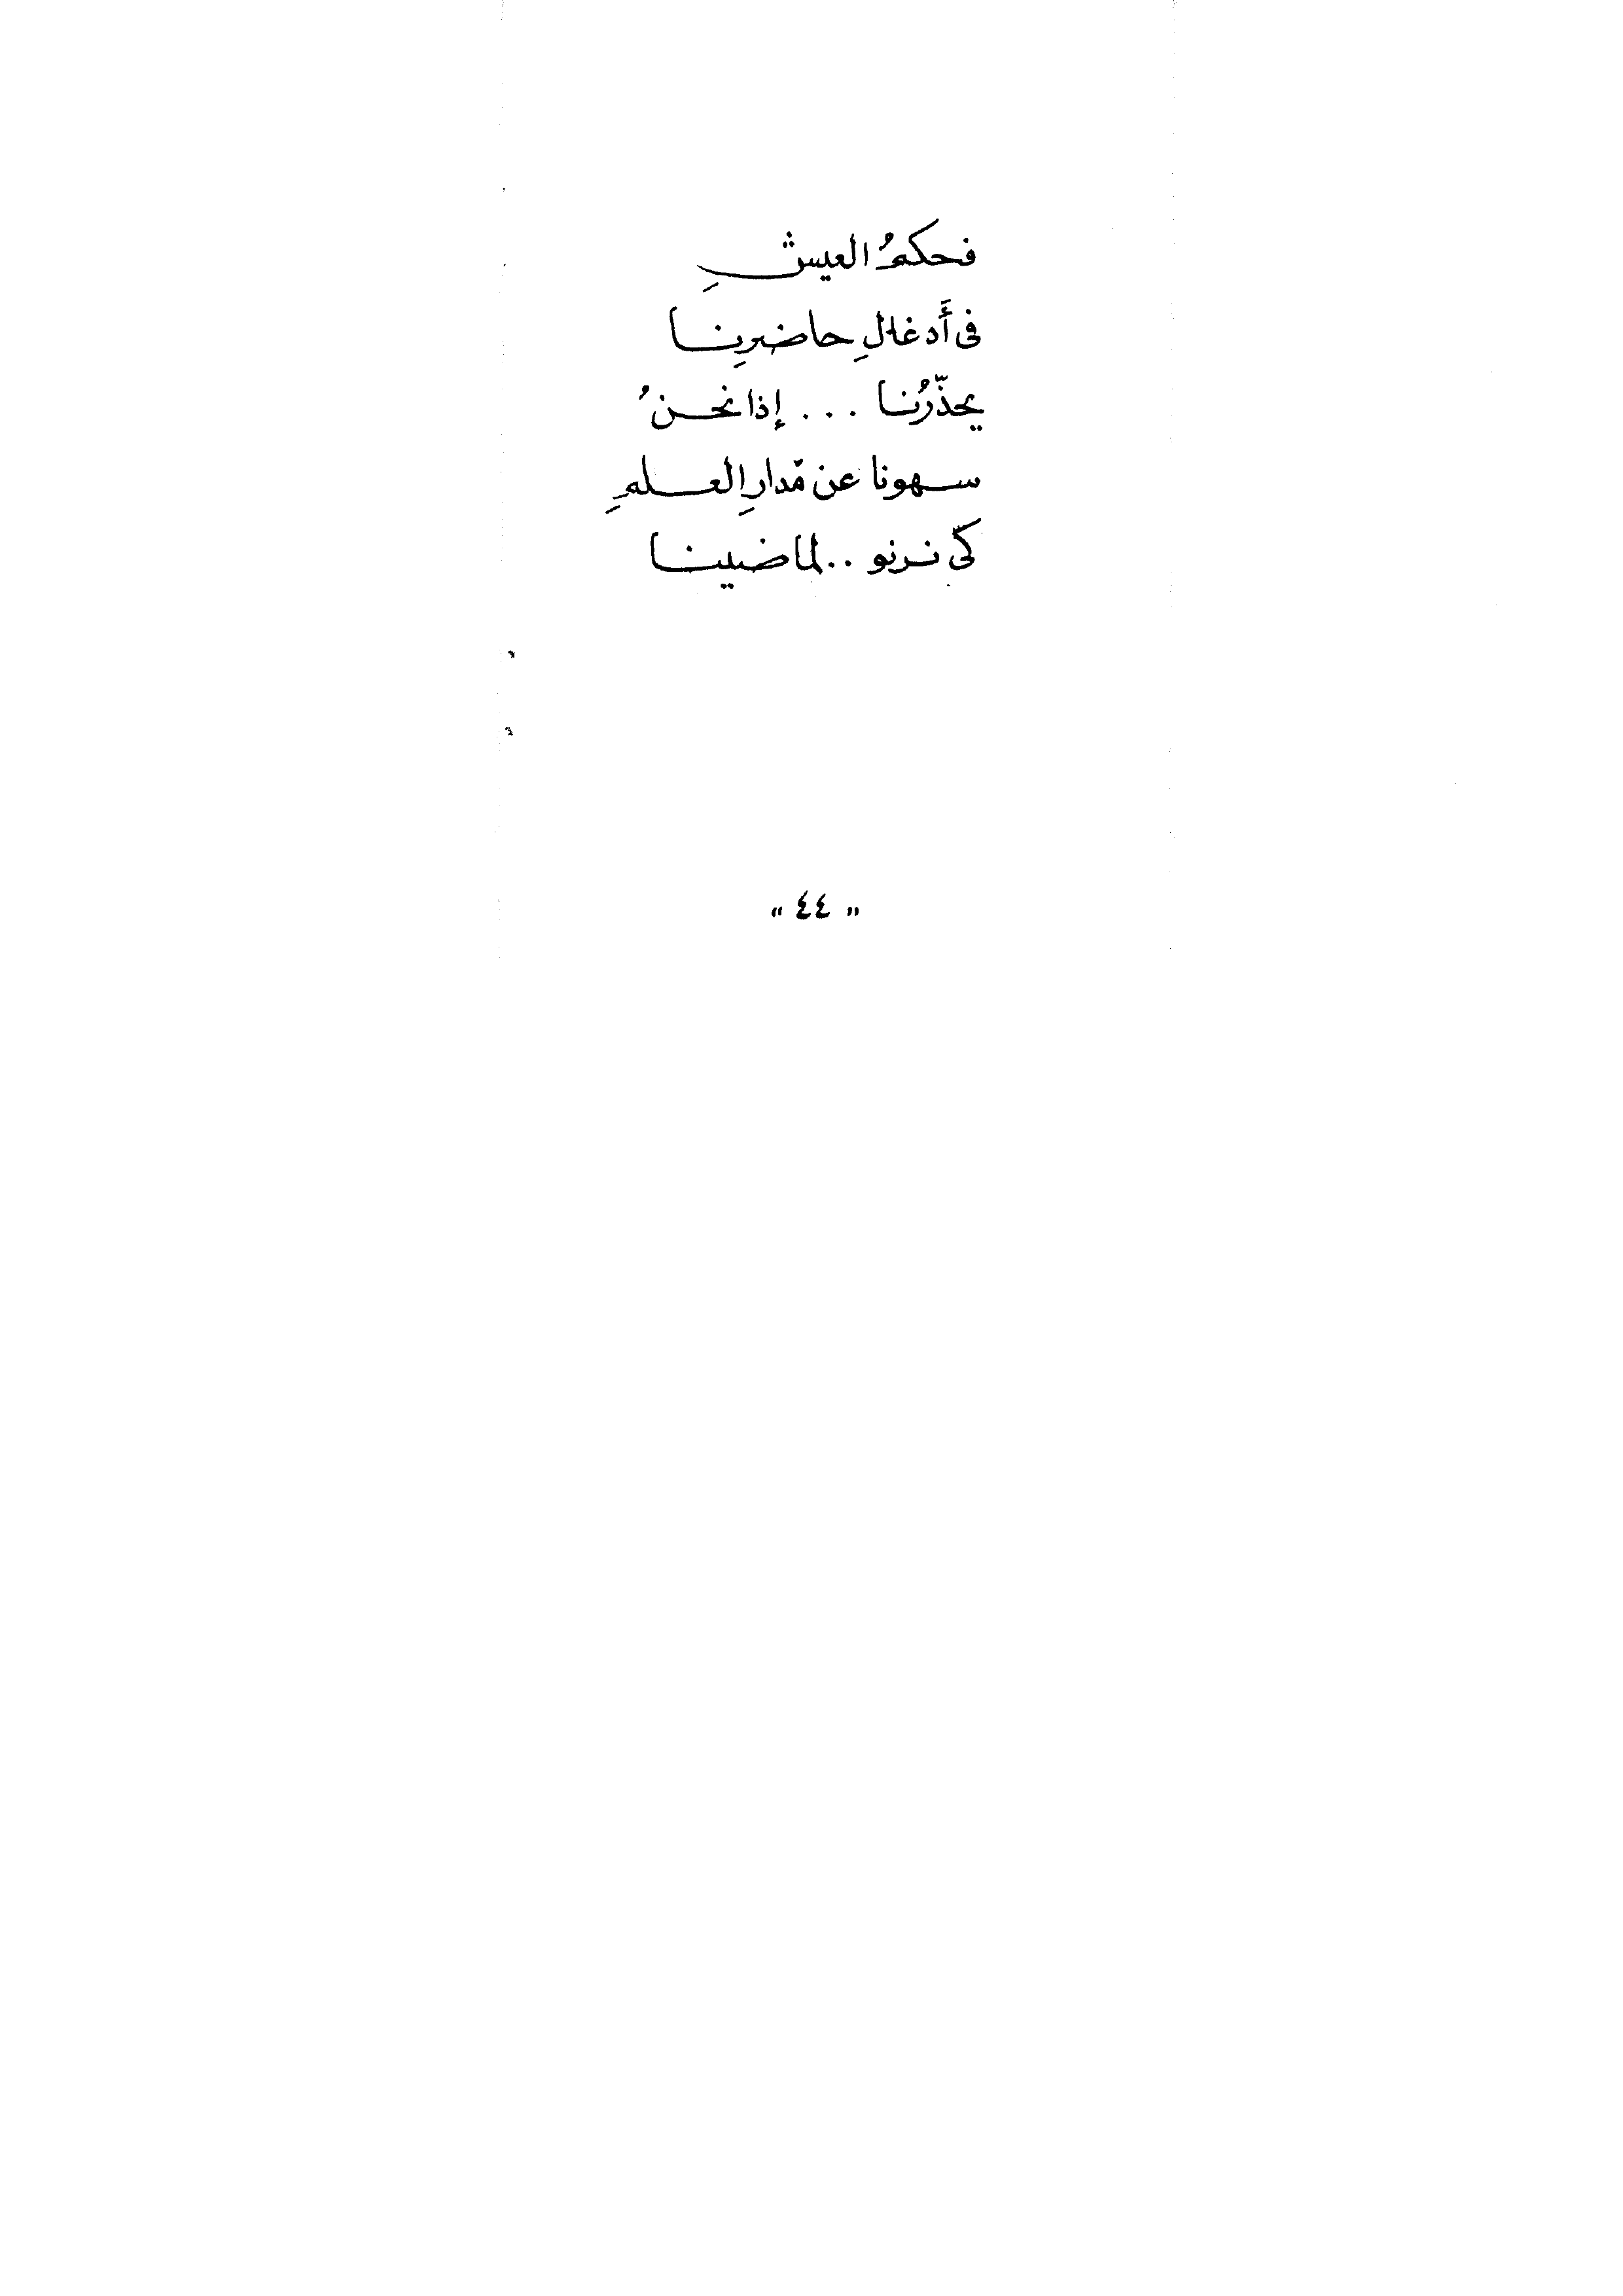 فحكمُ العيشِ
فى أَدغالِ حاضرِنا
يحذّرُنا ... إذا نحنُ
سهونا عن مّدارِ العلمِ
كى نرنو .. لماضينا
" ٤٤ "